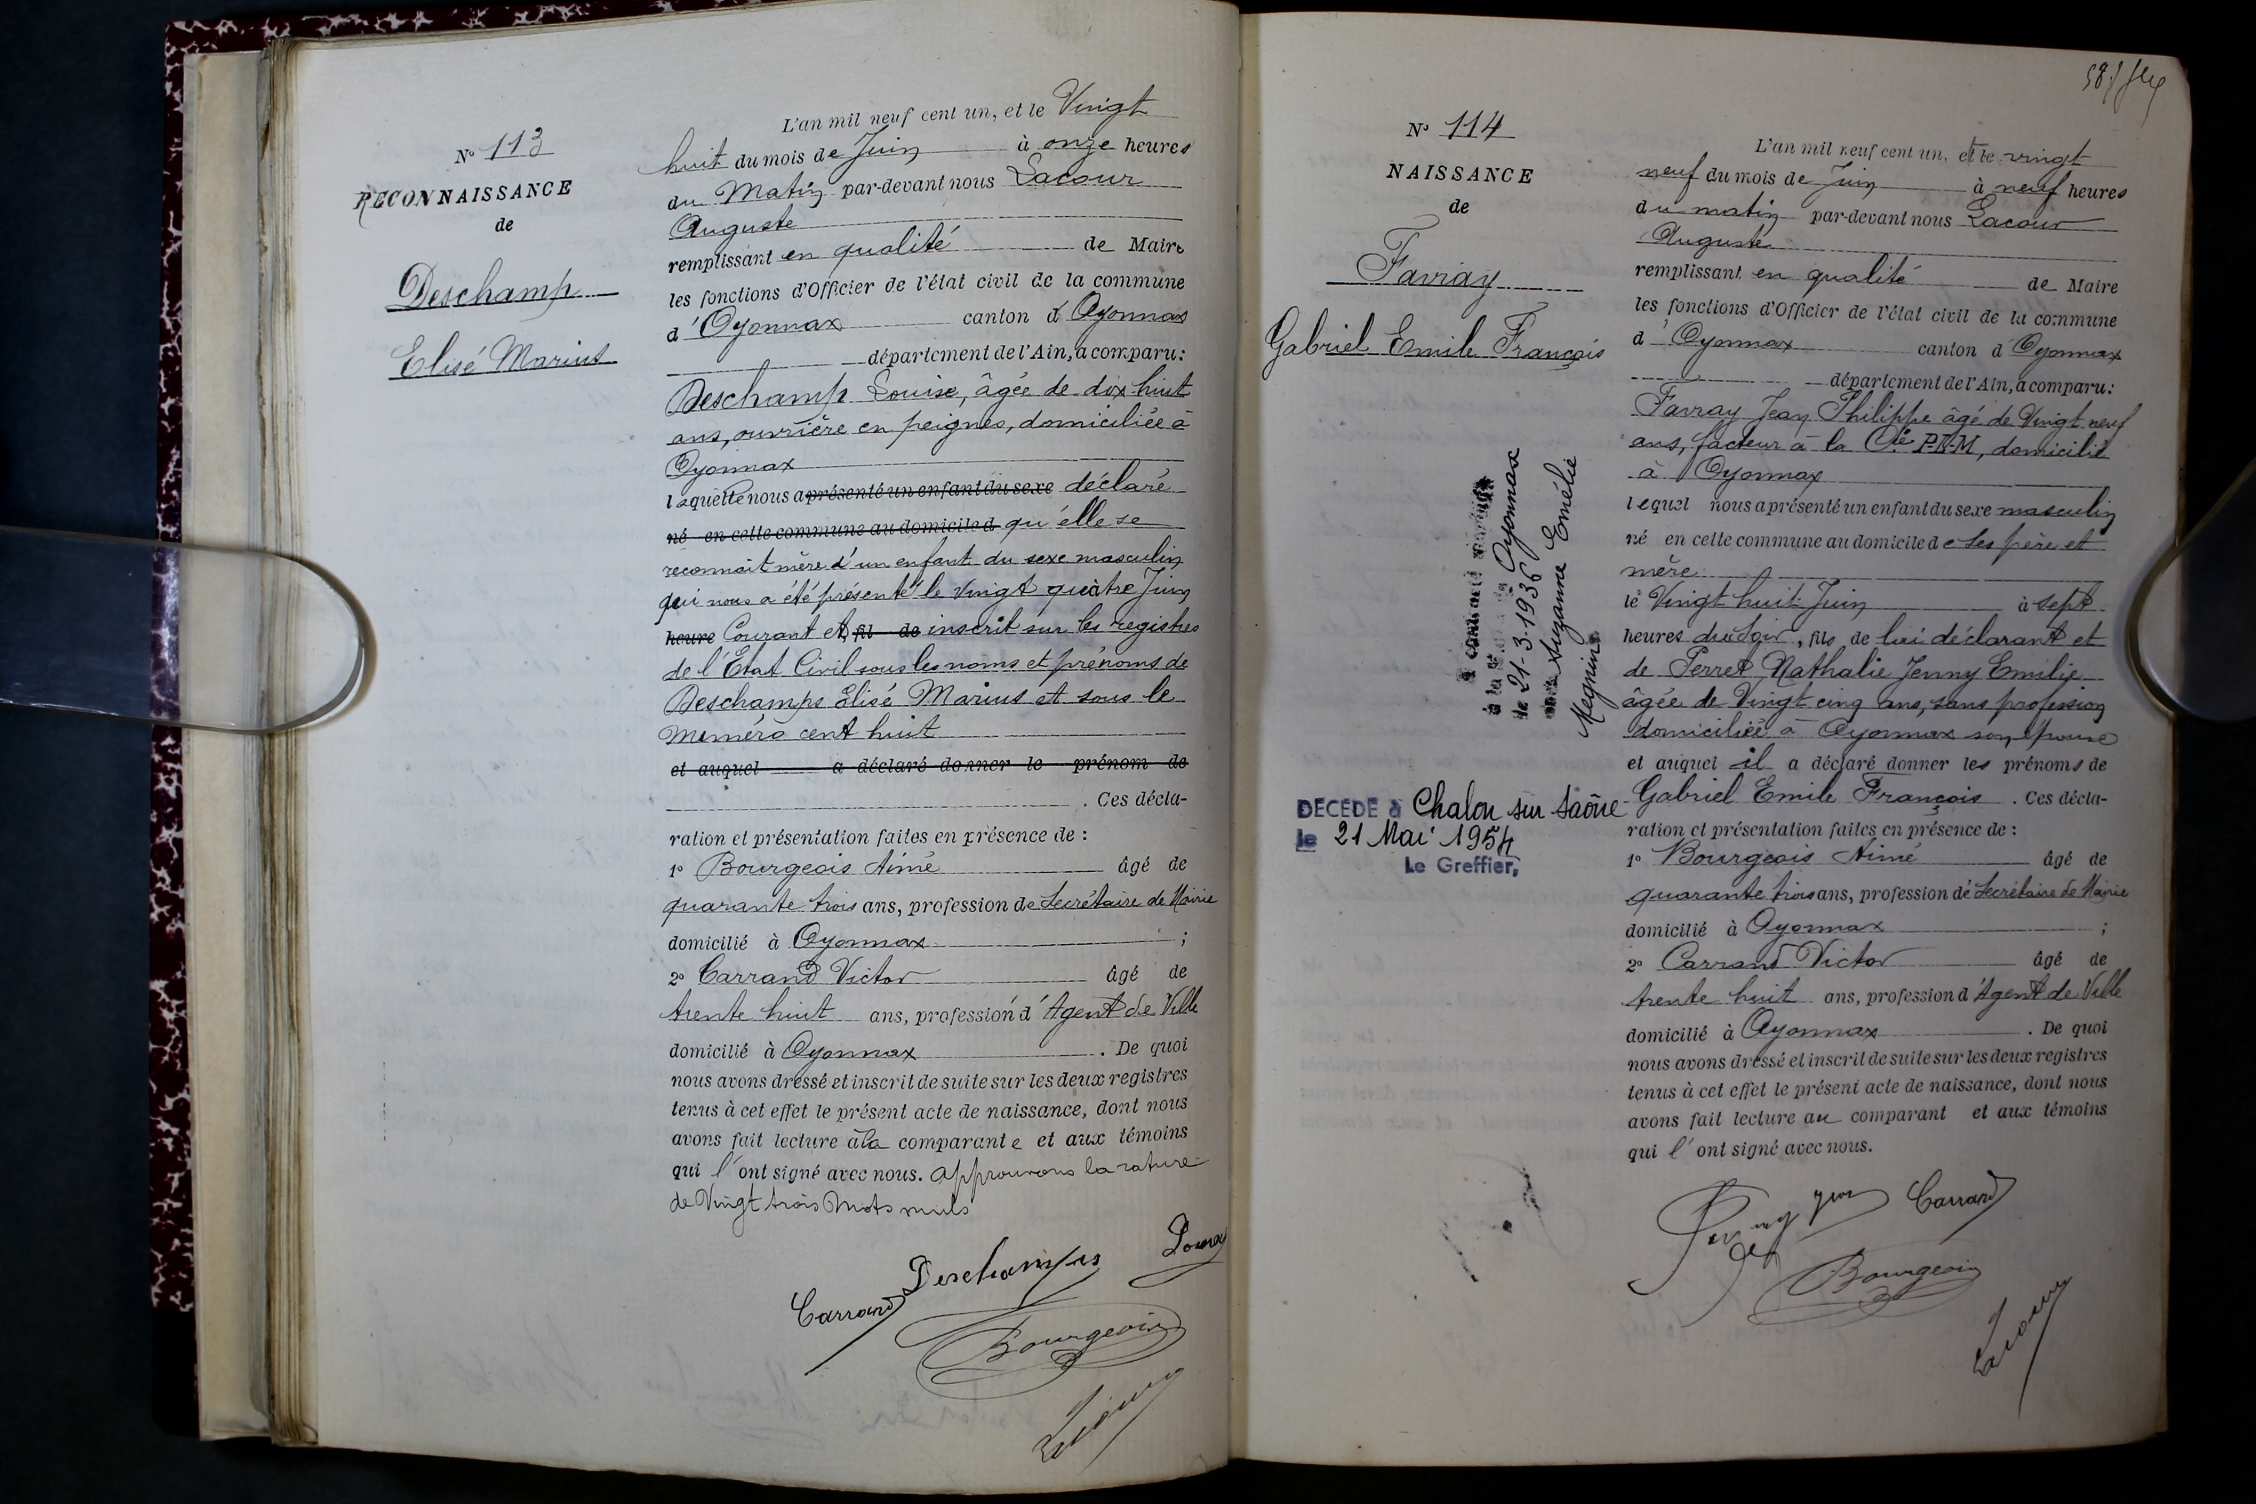 N° 113
RECONNAISSANCE
de
Deschamp
Elisé Marius
L'an mil neuf cent un, et le Vingt
huit du mois de Juin à onze heures
du Matin par-devant nous Lacour
Auguste
remplissant en qualité de Maire
les fonctions d'Officier de l'état civil de la commune
d'Oyonnax canton d'Oyonnax
département de l'Ain, a comparu:
Deschamp Louise, âgée de dix huit
ans, ouvrière en peignes, domiciliée à
Oyonnax
laquelle nous a présenté un enfant du sexe déclaré
né en cette commune au domicile d qu'elle se
reconnait mère d'un enfant du sexe masculin
qui nous a été présenté le vingt quatre Juin
heure Courant et fil de inscrit sur les registres
de l'Etat Civil sous les noms et prénoms de
Deschamps Elisé Marius et sous le
numéro cent huit
et auquel a déclaré donner le prénom de
. Ces décla-
ration et présentation faites en présence de :
1° Bourgeois Aimé âgé de
quarante trois ans, profession de Secrétaire de Mairie
domicilié à Oyonnax ;
2° Carrand Victor âgé de
trente huit ans, profession d'Agent de Ville
domicilié à Oyonnax . De quoi
nous avons dressé et inscrit de suite sur les deux registres
tenus à cet effet le présent acte de naissance, dont nous
avons fait lecture à la comparante et aux témoins
qui l'ont signé avec nous. Approuvons la rature
de Vingt trois mots nuls
Deschamps
Carrand
Bourgeois
Lacour
58
N° 114
NAISSANCE
de
Favray
Gabriel Emile François
Oyonnax
le 21-3-1936
avec Suzanne Emélie
Megnin
DÉCÉDÉ à Chalon sur Saône
le 21 Mai 1954
Le Greffier,
L'an mil neuf cent un, et le vingt
neuf du mois de Juin à neuf heures
du matin par-devant nous Lacour
Auguste
remplissant en qualité de Maire
les fonctions d'Officier de l'état civil de la commune
d'Oyonnax canton d'Oyonnax
département de l'Ain, a comparu:
Favray Jean Philippe âgé de Vingt neuf
ans, facteur à la Cie P-L-M, domicilié
à Oyonnax
lequel nous a présenté un enfant du sexe masculin
né en cette commune au domicile de ses père et
mère
le Vingt huit Juin à sept
heures du soir, fils de lui déclarant et
de Perret Nathalie Jenny Emilie
âgée de Vingt cinq ans, sans profession
domiciliée à Oyonnax son épouse
et auquel il a déclaré donner les prénoms de
Gabriel Emile François . Ces décla-
ration et présentation faites en présence de :
1° Bourgeois Aimé âgé de
quarante trois ans, profession de Secrétaire de Mairie
domicilié à Oyonnax ;
2° Carrand Victor âgé de
trente huit ans, profession d'Agent de Ville
domicilié à Oyonnax . De quoi
nous avons dressé et inscrit de suite sur les deux registres
tenus à cet effet le présent acte de naissance, dont nous
avons fait lecture au comparant et aux témoins
qui l'ont signé avec nous.
Carrand
Bourgeois
Lacour